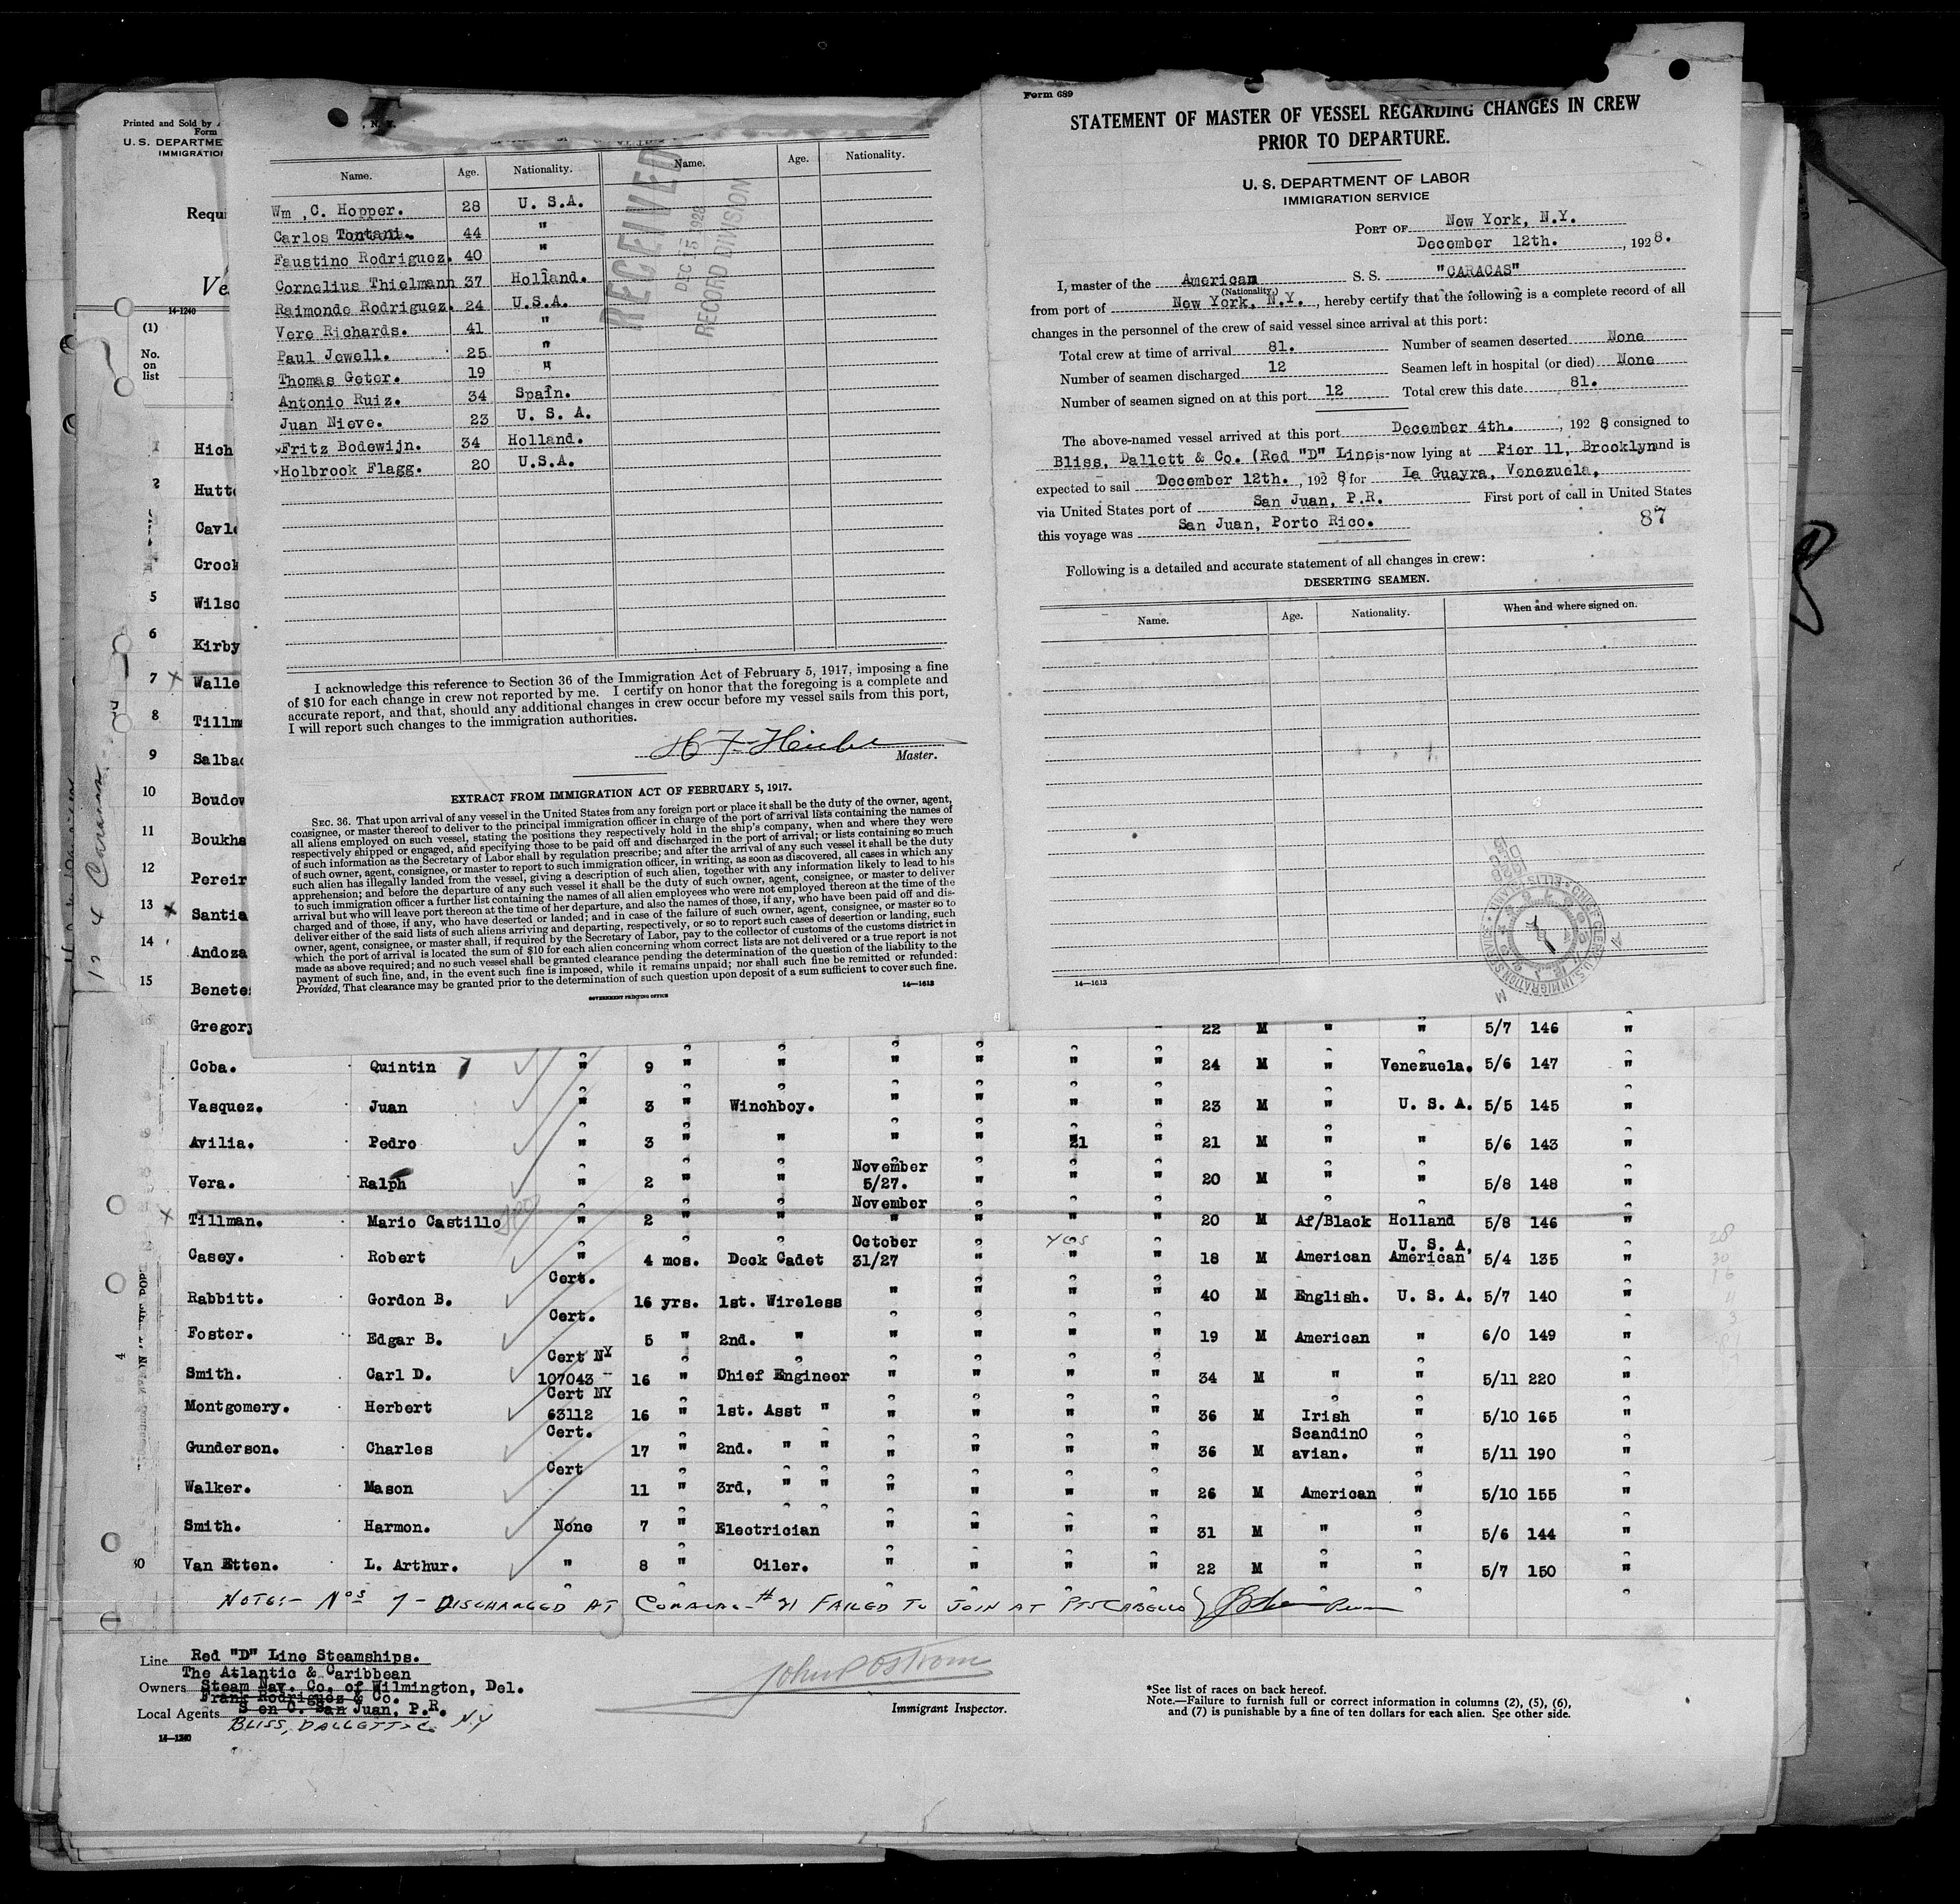 Printed and Sold by
Form
U. S. DEPARTME
IMMIGRATIO
Requi
Ve
14-1240
(1)
No.
on
list
Name. Age. Nationality. Name. Age. Nationality.
Wm ,C. Hopper. 28 U. S.A.
Carlos Tontani. 44 "
Faustino Rodriguez. 40 "
Cornelius Thielmann 37 Holland.
Raimonde Rodriguez. 24 U.S.A.
Vere Richards. 41 "
Paul Jewell. 25 "
Thomas Geter. 19 "
Antonio Ruiz. 34 Spain.
Juan Nieve. 23 U. S. A.
Fritz Bodewijn. 34 Holland.
Holbrook Flagg. 20 U.S.A.
RECEIVED
DEC 15 1928
RECORD DIVISION
I acknowledge this reference to Section 36 of the Immigration Act of February 5, 1917, imposing a fine
of $10 for each change in crew not reported by me. I certify on honor that the foregoing is a complete and
accurate report, and that, should any additional changes in crew occur before my vessel sails from this port,
I will report such changes to the immigration authorities.
Master.
EXTRACT FROM IMMIGRATION ACT OF FEBRUARY 5, 1917.
SEC. 36. That upon arrival of any vessel in the United States from any foreign port or place it shall be the duty of the owner, agent,
consignee, or master thereof to deliver to the principal immigration officer in charge of the port of arrival lists containing the names of
all aliens employed on such vessel, stating the positions they respectively hold in the ship's company, when and where they were
respectively shipped or engaged, and specifying those to be paid off and discharged in the port of arrival; or lists containing so much
of such information as the Secretary of Labor shall by regulation prescribe; and after the arrival of any such vessel it shall be the duty
of such owner, agent, consignee, or master to report to such immigration officer, in writing, as soon as discovered, all cases in which any
such alien has illegally landed from the vessel, giving a description of such alien, together with any information likely to lead to his
apprehension; and before the departure of any such vessel it shall be the duty of such owner, agent, consignee, or master to deliver
to such immigration officer a further list containing the names of all alien employees who were not employed thereon at the time of the
arrival but who will leave port thereon at the time of her departure, and also the names of those, if any, who have been paid off and dis-
charged and of those, if any, who have deserted or landed; and in case of the failure of such owner, agent, consignee, or master so to
deliver either of the said lists of such aliens arriving and departing, respectively, or so to report such cases of desertion or landing, such
owner, agent, consignee, or master shall, if required by the Secretary of Labor, pay to the collector of customs of the customs district in
which the port of arrival is located the sum of $10 for each alien concerning whom correct lists are not delivered or a true report is not
made as above required; and no such vessel shall be granted clearance pending the determination of the question of the liability to the
payment of such fine, and, in the event such fine is imposed, while it remains unpaid; nor shall such fine be remitted or refunded:
Provided, That clearance may be granted prior to the determination of such question upon deposit of a sum sufficient to cover such fine.
GOVERNMENT PRINTING OFFICE 14—1613
Form 689
STATEMENT OF MASTER OF VESSEL REGARDING CHANGES IN CREW
PRIOR TO DEPARTURE.
U. S. DEPARTMENT OF LABOR
IMMIGRATION SERVICE
PORT OF New York, N.Y.
December 12th. , 1928.
I, master of the American S. S. "CARACAS"
(Nationality)
from port of New York, N.Y. , hereby certify that the following is a complete record of all
changes in the personnel of the crew of said vessel since arrival at this port:
Total crew at time of arrival 81. Number of seamen deserted None
Number of seamen discharged 12 Seamen left in hospital (or died) None
Number of seamen signed on at this port 12 Total crew this date 81.
The above-named vessel arrived at this port December 4th. , 192 8 consigned to
Bliss, Dallett & Co. (Red "D" Line is now lying at Pier 11, Brooklyn and is
expected to sail December 12th. , 192 8 for La Guayra, Venezuela,
via United States port of San Juan, P.R. First port of call in United States
this voyage was San Juan, Porto Rico. 87
Following is a detailed and accurate statement of all changes in crew:
DESERTING SEAMEN.
Name. Age. Nationality. When and where signed on.
14—1613
1 Hich
2 Hutt
Cavl
Crock
5 Wilso
6 Kirby
7 Walle
8 Tillm
9 Salbac
10 Boudow
11 Boukha
12 Pereir
13 Santia
14 Andoza
15 Benete
Gregory 22 M " " 5/7 146 "
Coba. Quintin " 9 " " " " " " 24 M " Venezuela. 5/6 147 "
Vasquez. Juan " 3 " Winchboy. " " " " 23 M " U. S. A. 5/5 145 "
Avilia. Pedro " 3 " " " " 21 " 21 M " " 5/6 143 "
November
Vera. Ralph " 2 " " 5/27. " " " 20 M " " 5/8 148 "
November
Tillman. Mario Castillo " 2 " " " " " " 20 M Af/Black Holland 5/8 146 "
October yes U. S. A.
Casey. Robert " 4 mos. Deck Cadet 31/27 " " " 18 M American American 5/4 135 "
Cert.
Rabbitt. Gordon B. 16 yrs. 1st. Wireless " " " " 40 M English. U. S. A. 5/7 140 "
Cert.
Foster. Edgar B. 5 " 2nd. " " " " " 19 M American " 6/0 149 "
Cert NY
Smith. Carl D. 107043 16 " Chief Engineer " " " " 34 M " " 5/11 220 "
Cert NY
Montgomery. Herbert 63112 16 " 1st. Asst " " " " " 36 M Irish " 5/10 165 "
Cert. ScandinO
Gunderson. Charles 17 " 2nd. " " " " " " 36 M avian. " 5/11 190 "
Cert
Walker. Mason 11 " 3rd, " " " " " " 26 M American " 5/10 155 "
Smith. Harmon. None 7 " Electrician " " " " 31 M " " 5/6 144 "
30 Van Etten. L. Arthur. " 8 " Oiler. " " " " 22 M " " 5/7 150 "
NOTE:- Nos 7 - DISCHARGED AT CURACAO - #21 FAILED TO JOIN AT PTO CABELLO
Line Red "D" Line Steamships.
The Atlantic & Caribbean
Owners Steam Nav. Co. of Wilmington, Del.
Frank Rodriguez & Co.
Local Agents S en C. San Juan, P.R.
BLISS, DALLETT & Co NY
14—1240
John P Ostrom
Immigrant Inspector.
*See list of races on back hereof.
Note.—Failure to furnish full or correct information in columns (2), (5), (6),
and (7) is punishable by a fine of ten dollars for each alien. See other side.